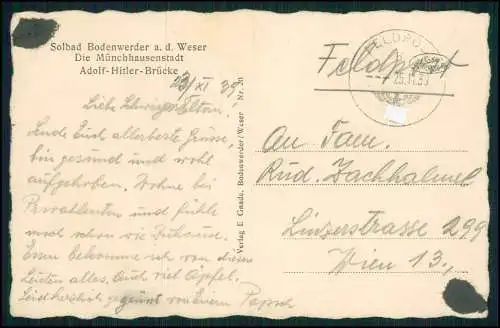 Solbad Bodenwerder a. d. Weser
Die Münchhausenstadt
Adolf-Hitler-Brücke
23/XI 39
Liebe Schwiegereltern!
Sende Euch allerbeste Grüsse,
bin gesund und wohl
aufgehoben. Wohne bei
Privatleuten und fühle
mich schon wie Zuhause.
Essen bekomme ich von diesen
Leuten alles. Auch viel Äpfel.
Seid herzlich gegrüsst von Eurem
Verlag E. Gnade, Bodenwerder/Weser Nr. 20
FELDPOST
25.11.39
Feldpost
An Fam.
Rud. Zachhalmel
Linzerstrasse 299
Wien 13.,